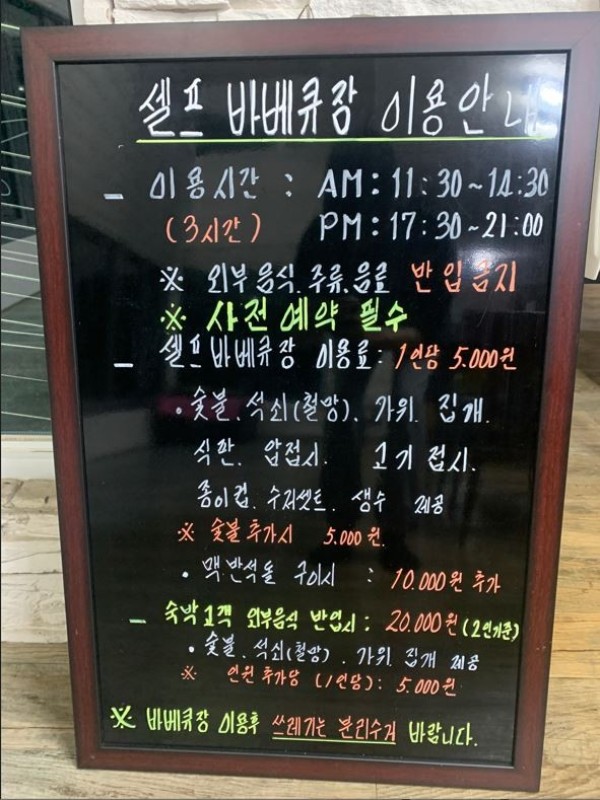 셀프 바베큐장 이용안내
- 이용시간 : AM : 11:30~14:30
(3시간) PM : 17:30~21:00
※ 외부음식.주류.음료 반입금지
※ 사전예약 필수
- 셀프바베큐장 이용료: 1인당 5.000원
• 숯불.석쇠(철망). 가위. 집개.
식판. 앞접시. 고기접시.
종이컵.수저셋트. 생수 제공
※ 숯불추가시 5.000원.
• 맥반석돌 구이시 : 10.000원 추가
- 숙박고객 외부음식 반입시: 20.000원(2인기준)
• 숯불.석쇠(철망).가위.집개 제공
※ 인원추가당 (1인당): 5.000원
※ 바베큐장 이용후 쓰레기는 분리수거 바랍니다.